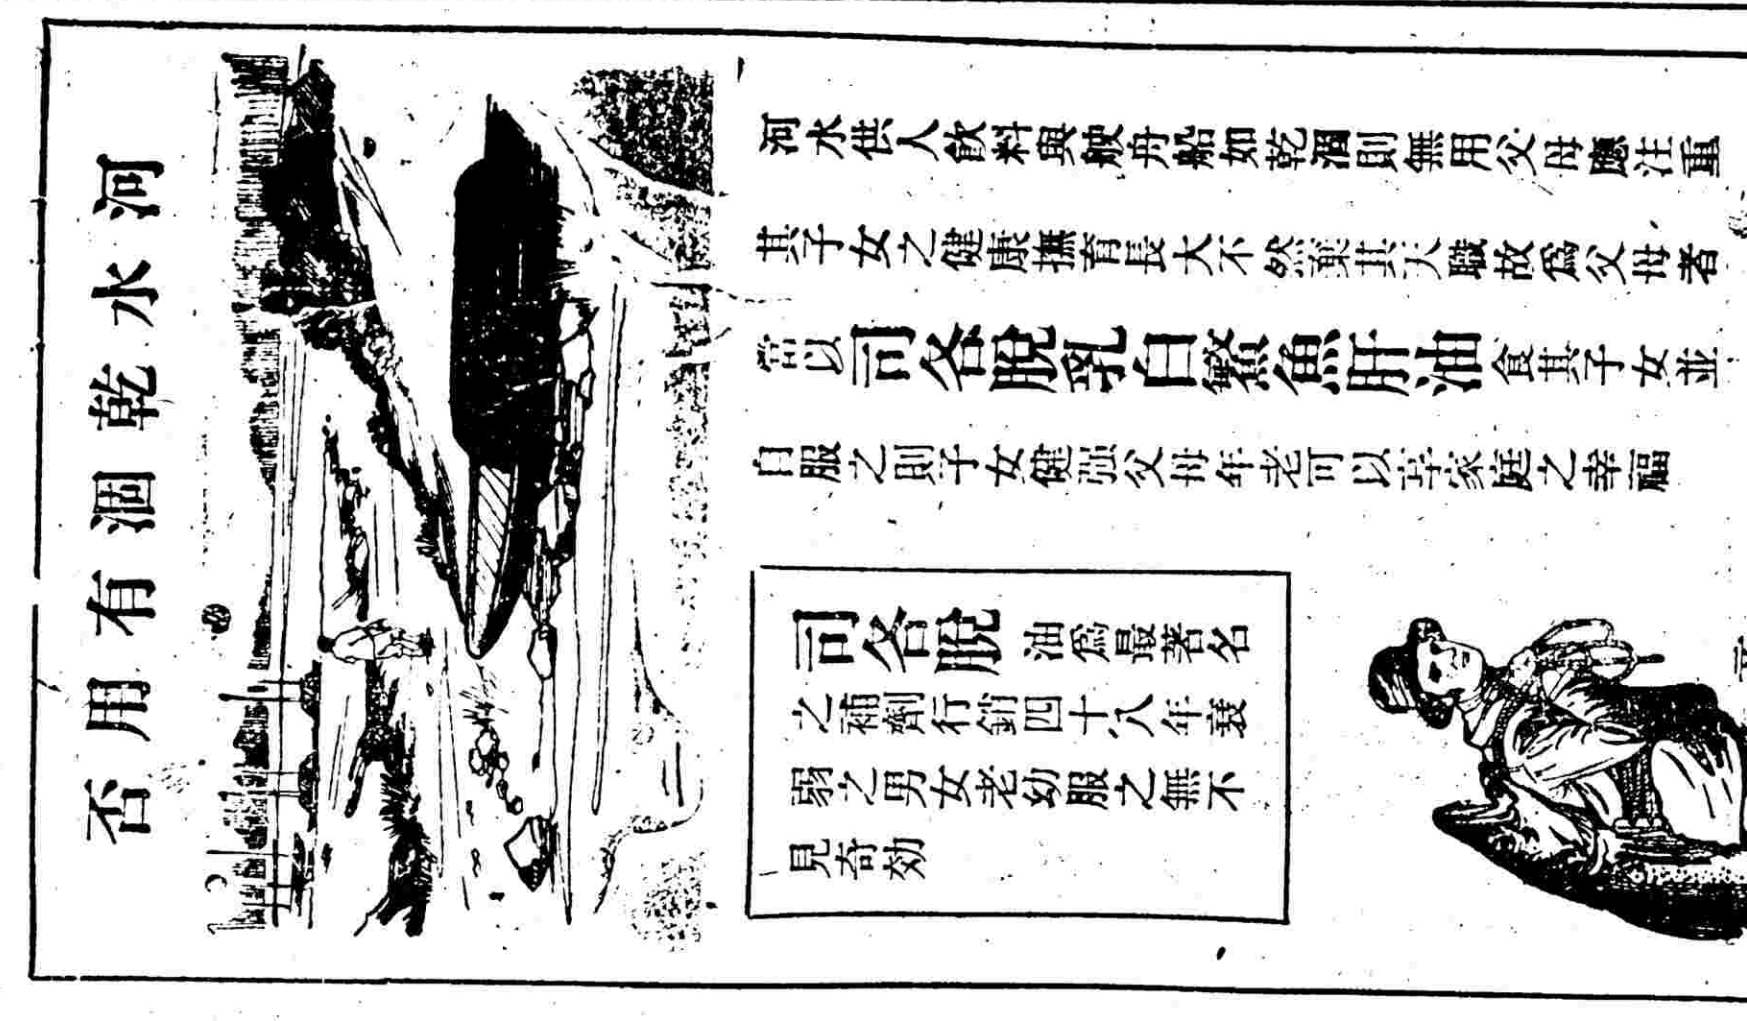 河水乾涸有用否
河水供人飲料與舟船如乾涸則無用父母應注重
其子女之健康撫育長大不然棄其天職故爲父母者
當以司各脫乳白鰵魚肝油食其子女並
自服之則子女健强父母年老可以享家庭之幸福
司各脫油爲最著名
之補劑行銷四十八年衰
弱之男女老幼服之無不
見奇効